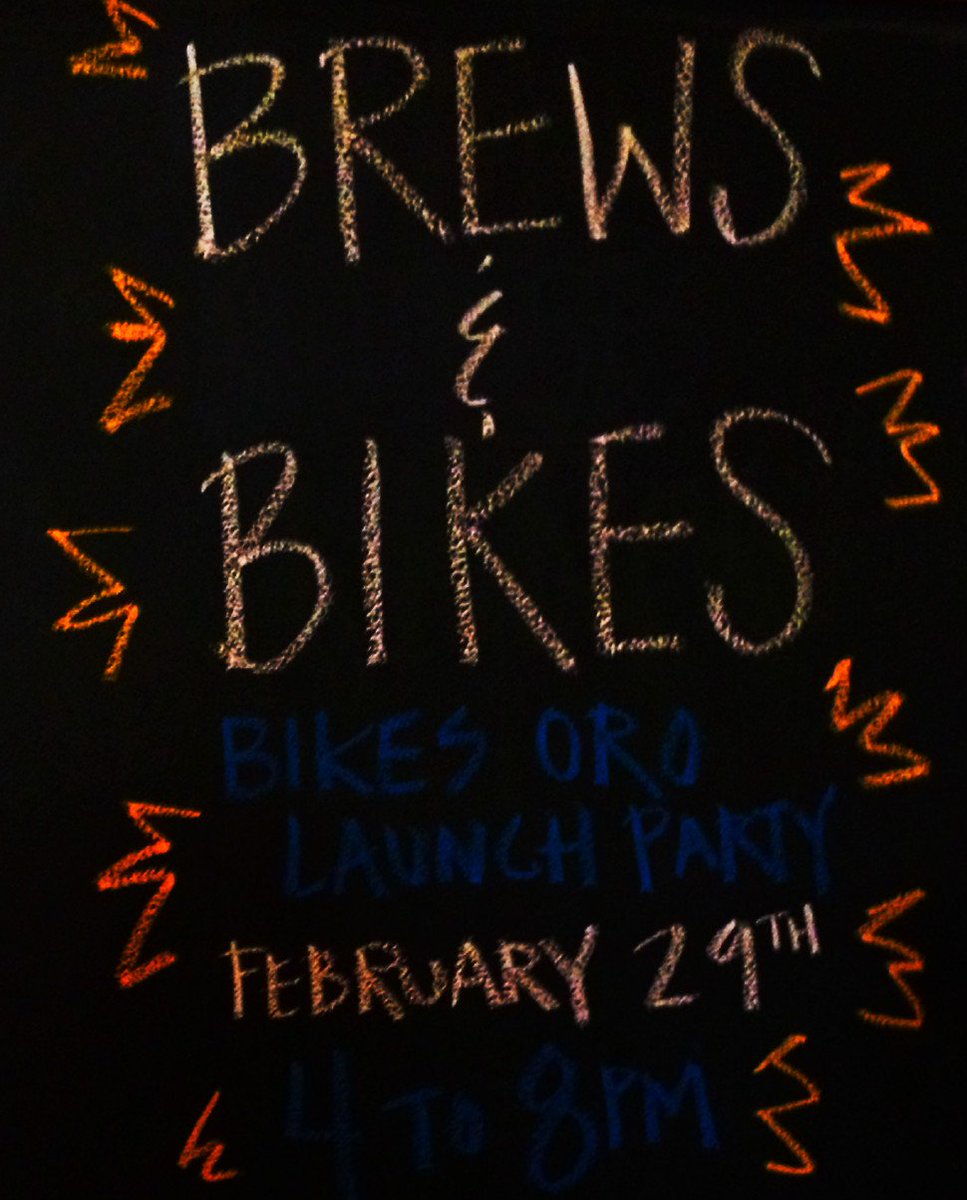 BREWS
&
BIKES
BIKES ORO
LAUNCH PARTY
FEBRUARY 29TH
4 TO 8PM